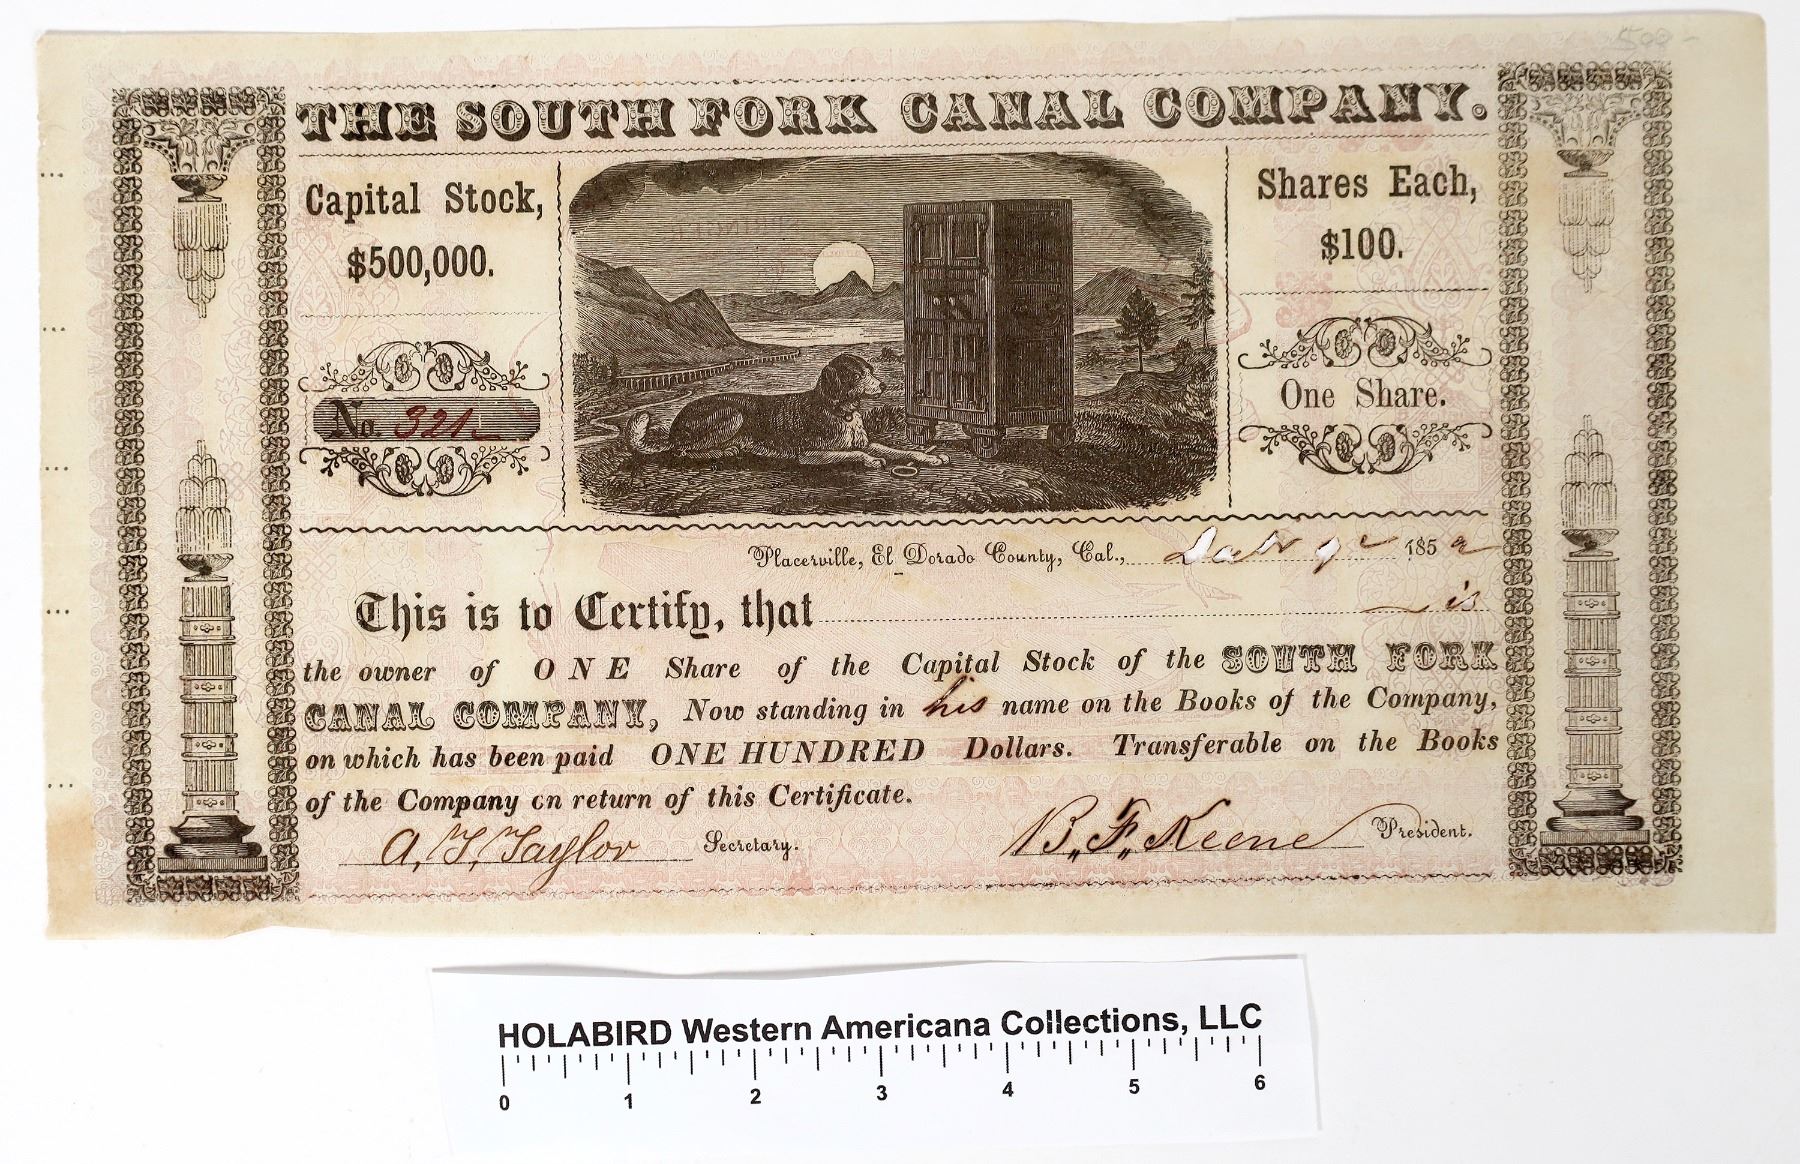 500-
THE SOUTH FORK CANAL COMPANY.
Capital Stock,
$500,000.
Shares Each,
$100.
No. 321
One Share.
Placerville, El Dorado County, Cal., 185
This is to Certify, that is
the owner of ONE Share of the Capital Stock of the SOUTH FORK
CANAL COMPANY, Now standing in his name on the Books of the Company,
on which has been paid ONE HUNDRED Dollars. Transferable on the Books
of the Company on return of this Certificate.
A. T. Taylor Secretary. B. F. Keene President.
HOLABIRD Western Americana Collections, LLC
0 1 2 3 4 5 6